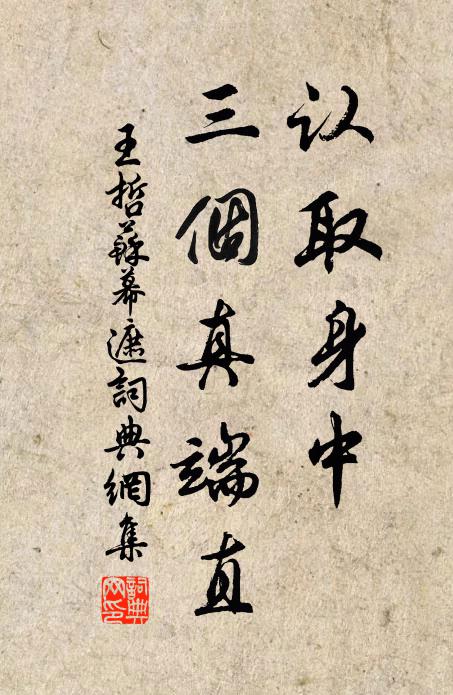 认取身中
三個真端直
王哲蘇幕遮詞典網集
詞典网印